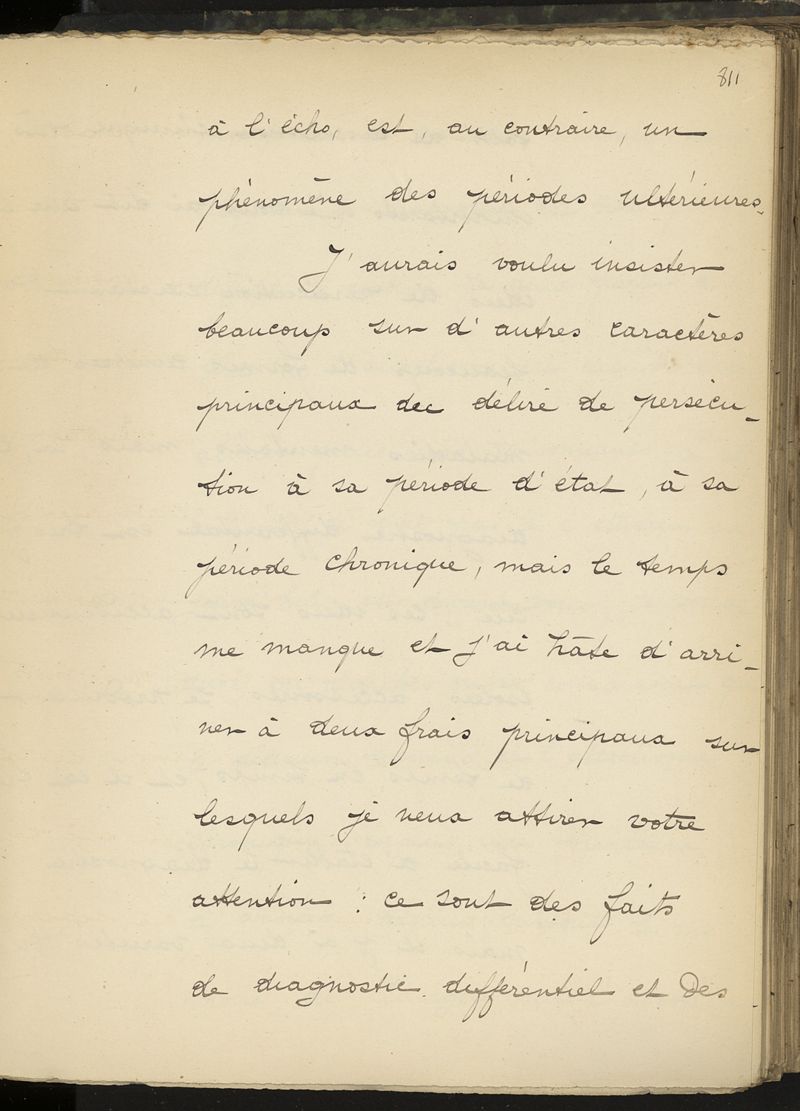 811
à l'écho, est, au contraire, un
phénomène des périodes ultérieures.
J'aurais voulu insister
beaucoup sur d'autres caractères
principaux du délire de persécu-
tion à sa période d'état, à sa
période chronique, mais le temps
me manque et j'ai hâte d'arri-
ver à deux frais principaux sur
lesquels je veux attirer votre
attention : ce sont des faits
de diagnostic différentiel et des